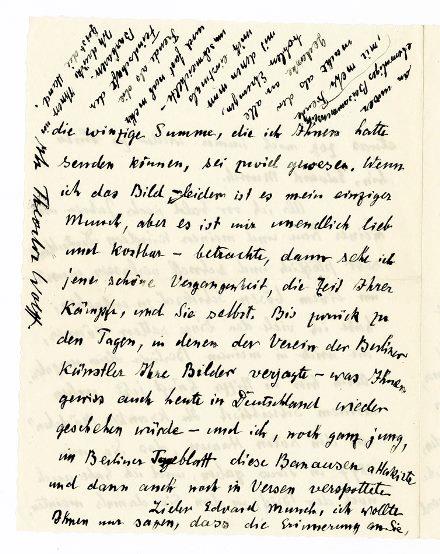 die winzige Summe, die ich Ihnen hatte
senden können, sei zuviel gewesen. Wenn
ich das Bild – leider ist es mein einziger
Munch, aber es ist mir unendlich lieb
und kostbar – betrachte, dann sehe ich
jene schöne Vergangenheit, die Zeit Ihrer
Kämpfe, und Sie selbst. Bis zurück zu
den Tagen, in denen der Verein der Berliner
Künstler Ihre Bilder verjagte – was Ihnen
gewiss auch heute in Deutschland wieder
geschehen würde – und ich, noch ganz jung,
im Berliner Tageblatt diese Banausen attakierte
und dann auch noch in Versen verspottete
Lieber Edvard Munch, ich wollte
Ihnen nur sagen, dass die Erinnerung an Sie,
an unsere
ehemalige
mir mehr Freude
macht als der
Gedanke
an alle
Ehrungen,
mit denen man
mich einstmals
umschmeichelte –
und fast noch mehr
Freude als die
Feindschaft der
Barbaren.
Ich drücke
Ihnen die Hand.
Ihr Theodor Wolff